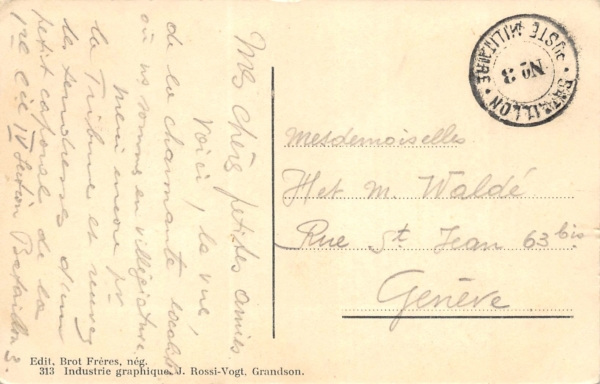 Mes chères petites amies.
Voici, la vue,
de la charmante localité
où ns sommes en villégiature,
Merci encore pr
la Tribune et recevez
les tendresses d'un
petit caporal de la
1re Cie IV Section Bataillon 3.
BATAILLON · POSTE MILITAIRE ·
No 3
Mesdemoiselles
H et M. Waldé
Rue St Jean 63 bis
Genève
Edit. Brot Frères, nég.
313 Industrie graphique J. Rossi-Vogt, Grandson.